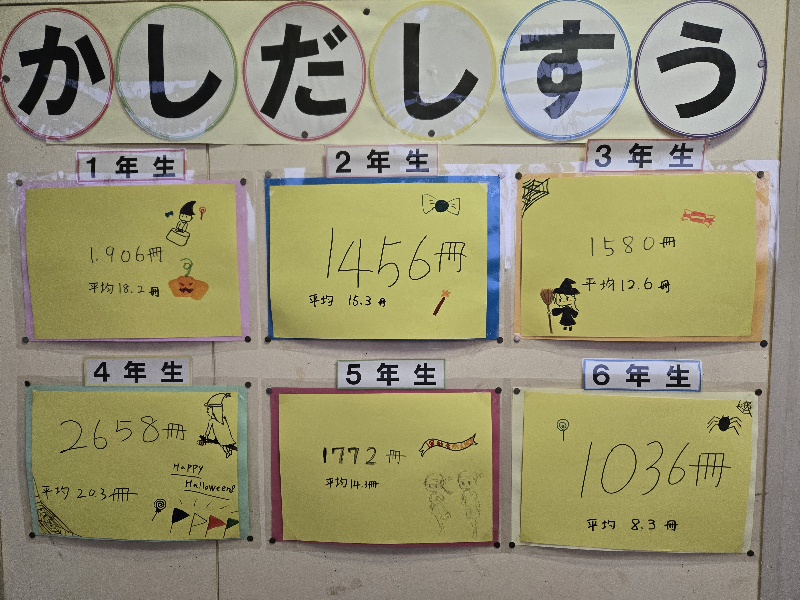 かしだしすう
1年生
1.906冊
平均18.2冊
2年生
1456冊
平均 15.3冊
3年生
1580冊
平均12.6冊
4年生
2658冊
平均20.3冊
Happy
Halloween!
5年生
1772冊
平均14.3冊
6年生
1036冊
平均 8.3冊